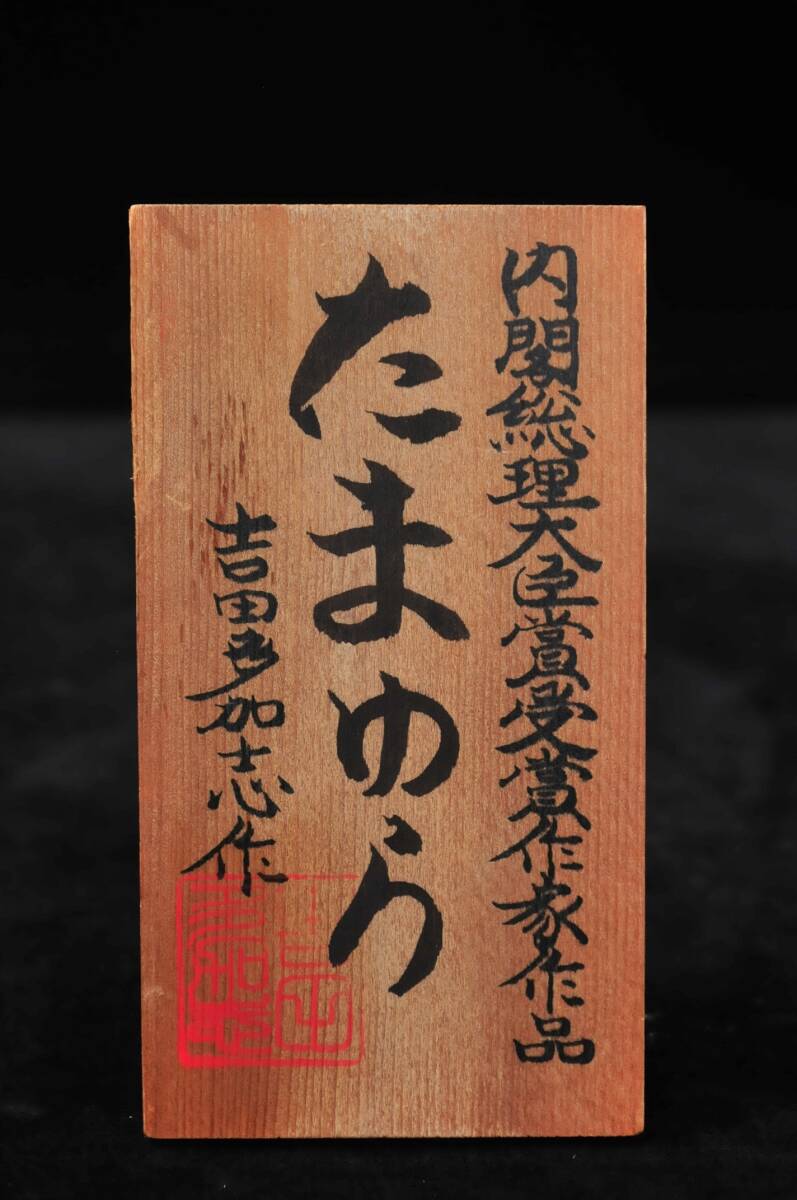 内閣総理大臣賞受賞作家作品
たまゆら
吉田多加志作